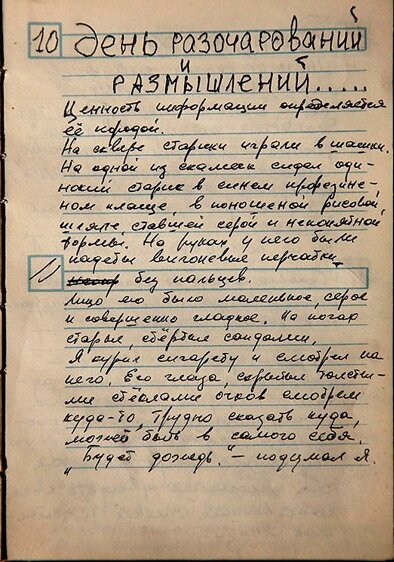 10 ДЕНЬ РАЗОЧАРОВАНИЙ
И
РАЗМЫШЛЕНИЙ.....
Ценность информации определяется
её природой.
На сквере старики играли в шашки.
На одной из скамеек сидел оди-
нокий старик в синем прорезине-
ном плаще, в поношеной фисовой
шляпе, ставшей серой и непонятной
формы. На руках у него были
надеты вигоневые перчатки
11 без пальцев.
Лицо его было маленькое, серое
и совершенно гладкое. На ногах
старые, стёртые сандалии.
Я курил сигарету и смотрел на
него. Его глаза, скрытые толсты-
ми стёклами очков смотрели
куда-то, трудно сказать куда,
может быть в самого себя.
"Будет дождь." - подумал я.